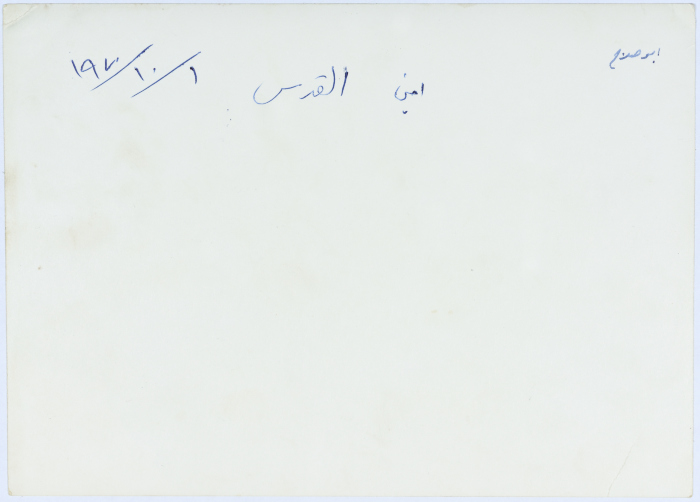 ابو صلاح
امين القدس ١٩٧٠/١٠/١